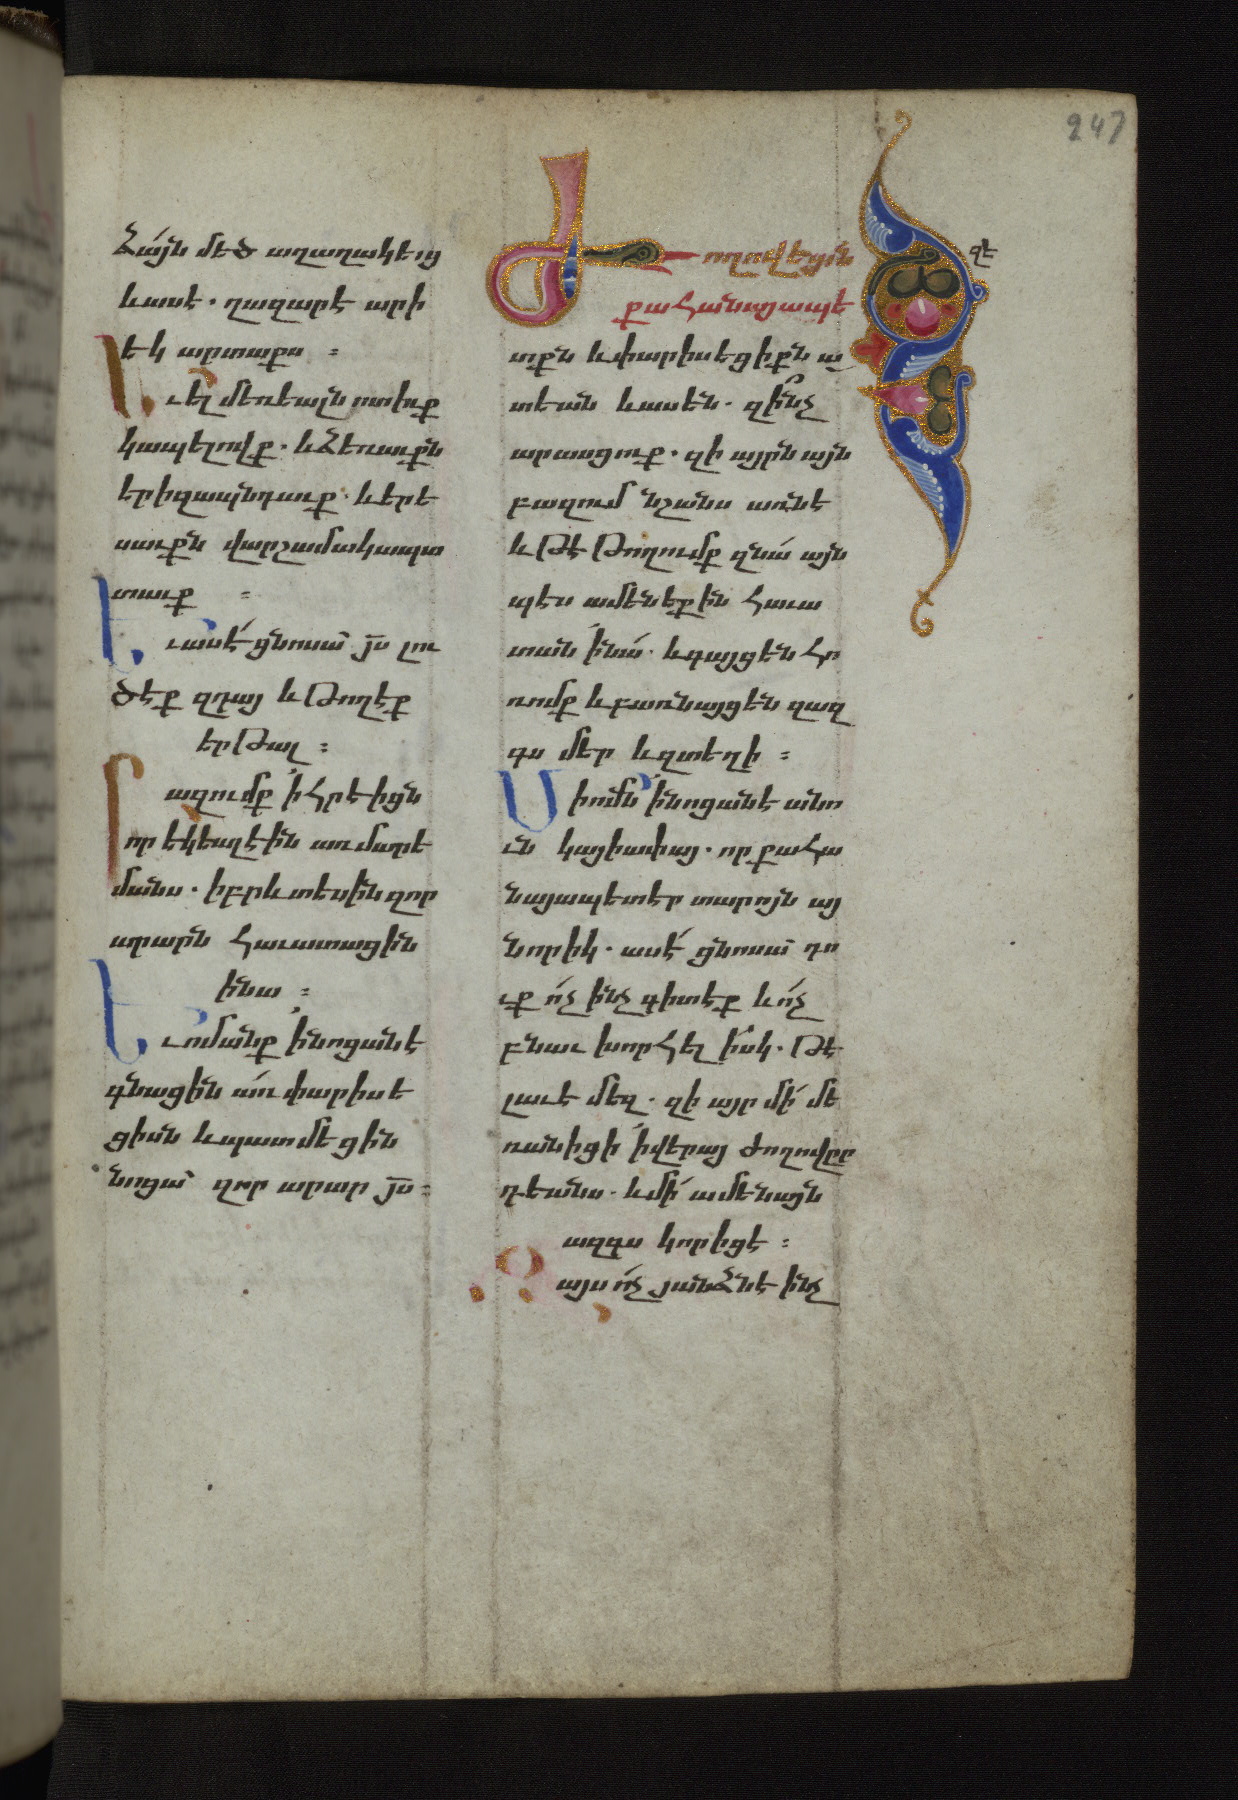 247
ձայն մեծ աղաղակեաց
եւասէ. ղազարէ արի
եկ արտաքս :
Ել մեռեալն ոտիւք
կապելովք. եւձեռաւքն
երիզապնդաւք. եւերե
սաւքն վարշամակապա
տաւք :
Եւասէ ցնոսա յս լու
ծէք զդայ եւթողէք
երթալ :
Բազումք ի հրէիցն
որ եկեալ էին առ մարե
մանս. իբրեւ տեսին զոր
արարն հաւատացին
ինա :
Եւոմանք ինոցանէ
գնացին առ փարիսե
ցիսն եւպատմեցին
նոցա զոր արար յս :
Ժողովեցան
քահանայապե
տքն եւփարիսեցիքն ա
տեան եւասեն. զինչ
արասցուք. զի այրն այն
բազում նշանս առնէ
եւթէ թողումք զնա այն
պէս ամենեքին հաւա
տան ինա. եւգայցեն հո
ռոմք եւբառնայցեն զազ
գս մեր եւզտեղի :
Միոմն ինոցանէ անո
ւն կայիափայ. որ քահա
նայապետ էր տարոյն այ
նորիկ. ասէ ցնոսա դո
ւք ոչ ինչ գիտէք եւոչ
բնաւ խորհել իսկ. թէ
լաւ է մեզ. զի այր մի մե
ռանիցի ի վերայ ժողովըր
դեանս. եւմի ամենայն
ազգս կորիցէ :
Զայս ոչ յանձնէ ինչ
զէ